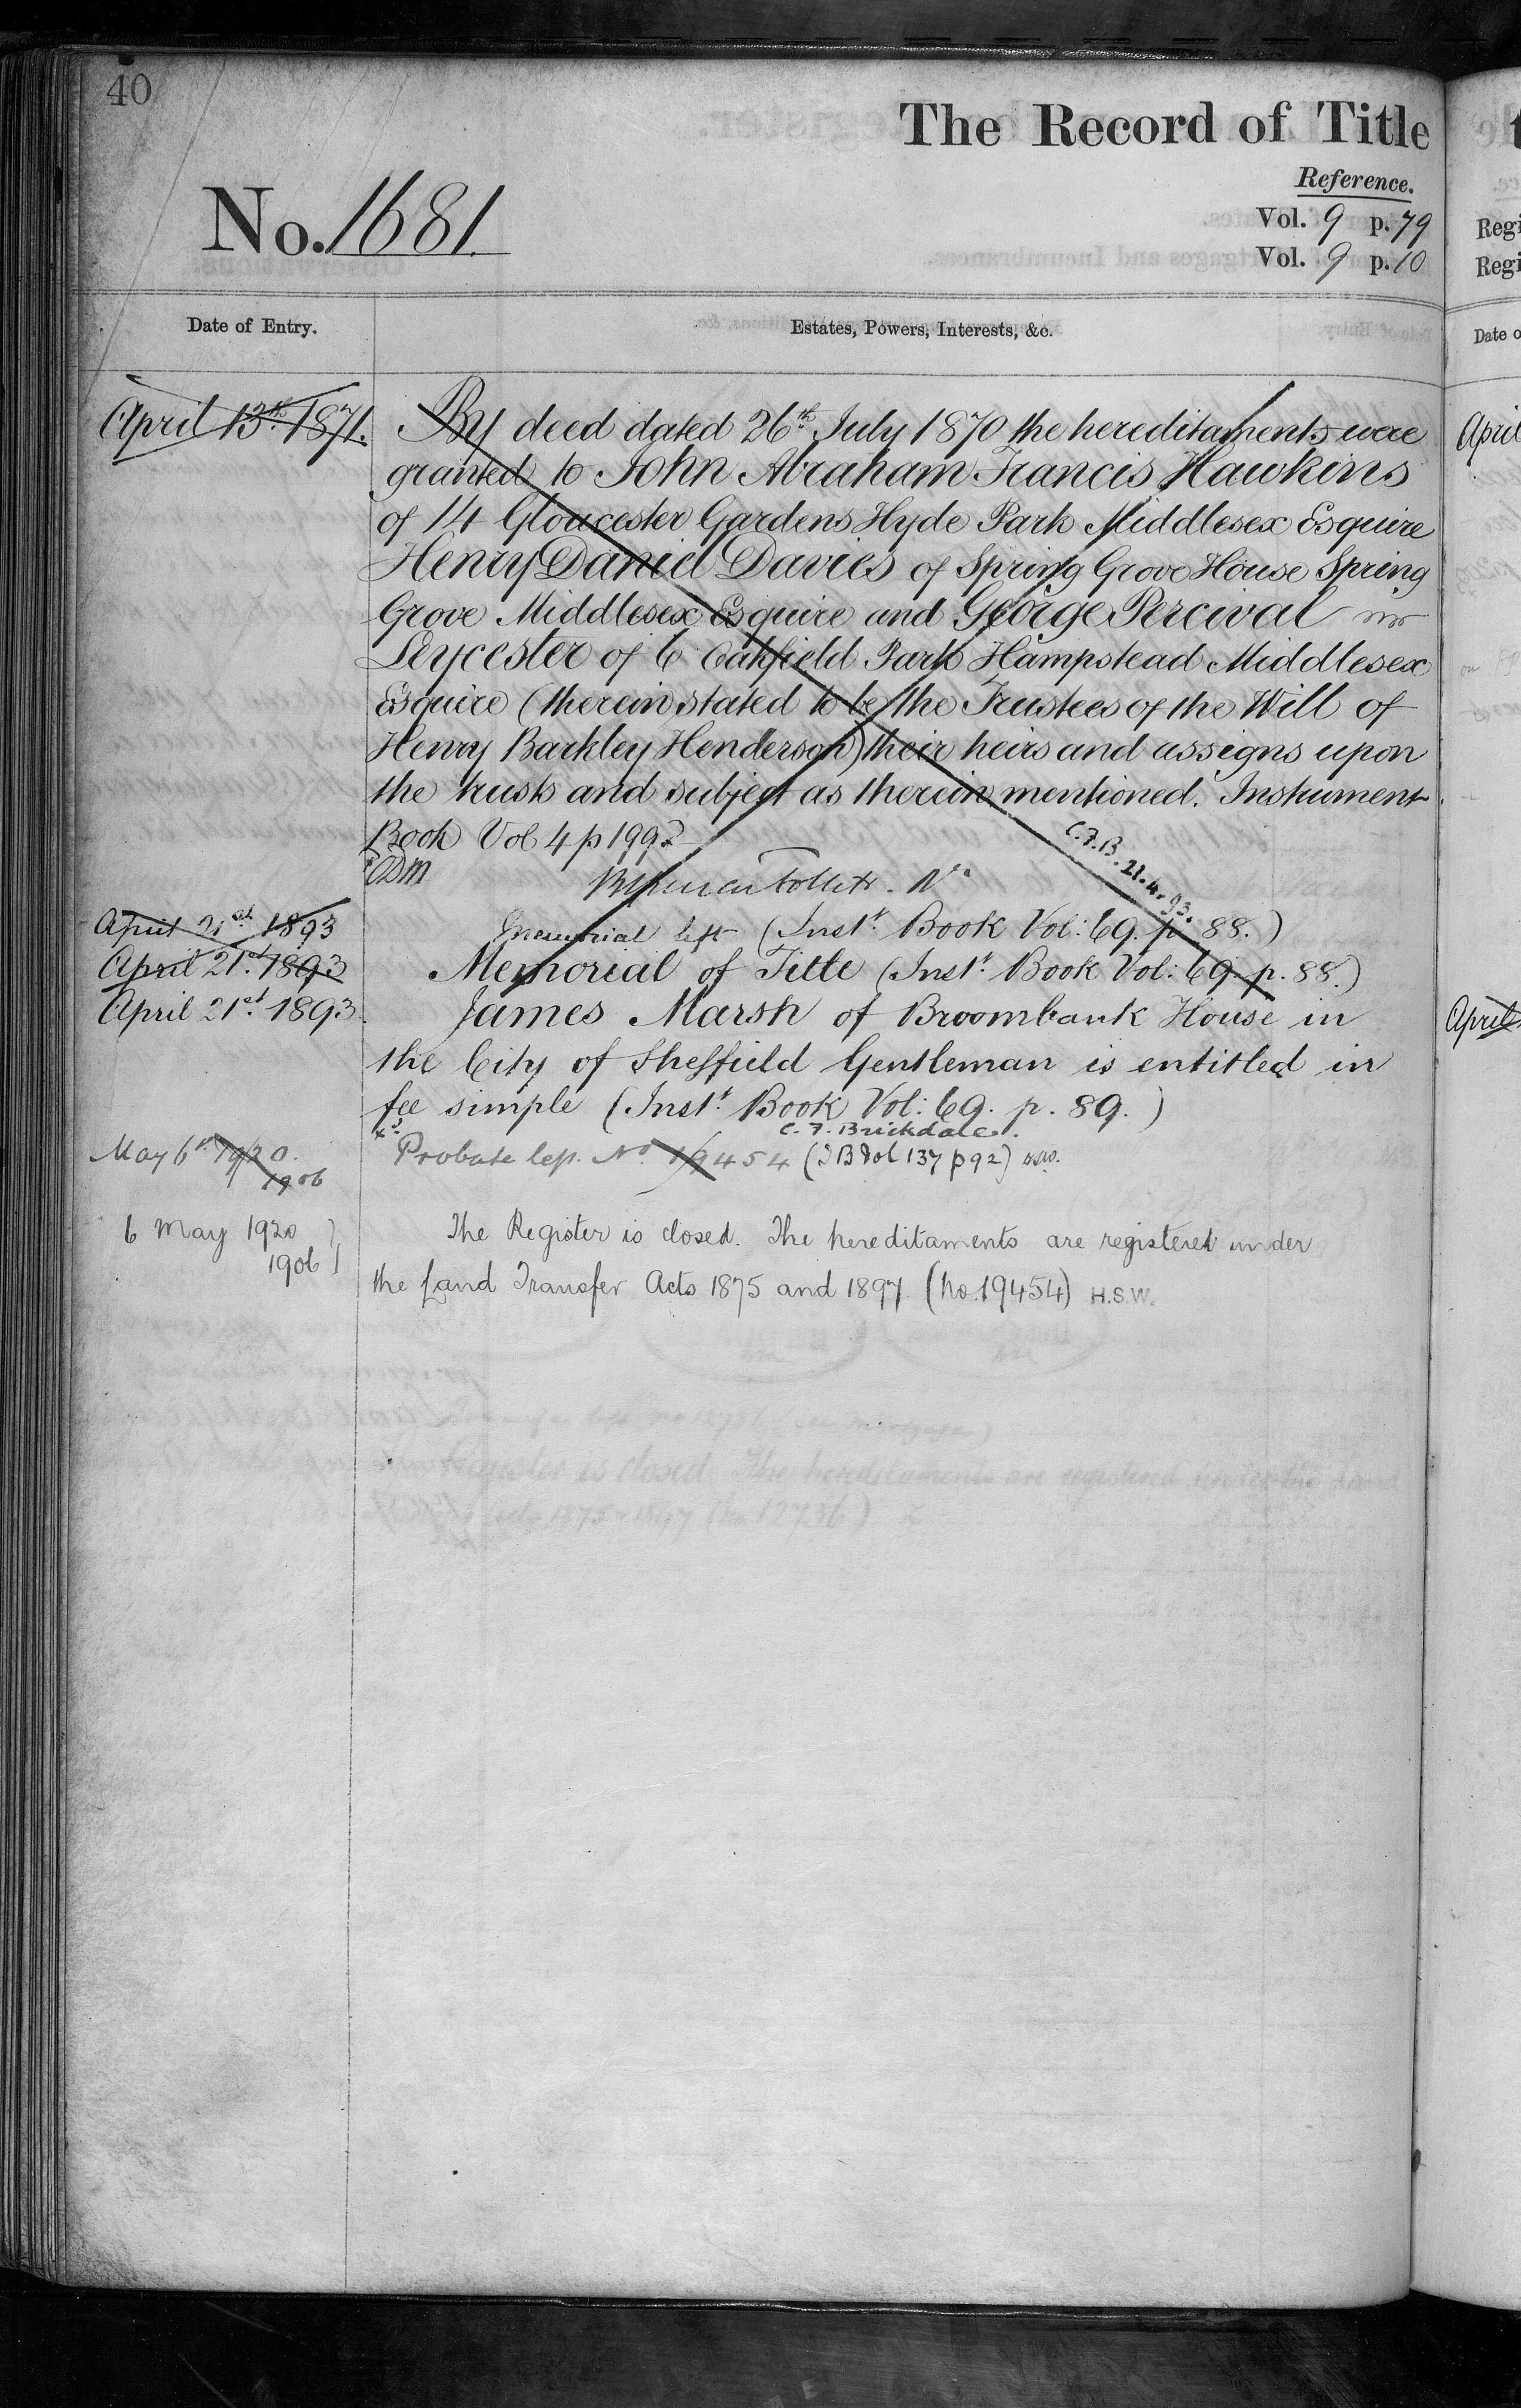 40
The Record of Title
Reference.
No. 1681.
Vol. 9 p. 79
Vol. 9 p. 10
Date of Entry.
Estates, Powers, Interests, &c.
April 13th 1871. By deed dated 26th July 1870 the hereditaments were
granted to John Abraham Francis Hawkins
of 14 Gloucester Gardens Hyde Park Middlesex Esquire
Henry Daniel Davies of Spring Grove House Spring
Grove Middlesex Esquire and George Percival
Leycester of 6 Oakfield Park Hampstead Middlesex
Esquire (therein stated to be the Trustees of the Will of
Henry Barkley Henderson) their heirs and assigns upon
the trusts and subject as therein mentioned. Instrument
Book Vol 4 p 199
C.F.B. 21.4.93.
April 21st 1893 Memorial left (Inst. Book Vol: 69. p. 88.)
April 21st 1893 Memorial of Title (Inst. Book Vol: 69. p. 88.)
April 21st 1893. James Marsh of Broombank House in
the City of Sheffield Gentleman is entitled in
fee simple (Inst. Book Vol: 69. p. 89.)
C. F. Brickdale.
May 6th 1920. Probate No. 19454 (IB Vol 137 p 92)
1906
6 May 1920 The Register is closed. The hereditaments are registered under
1906 the Land Transfer Acts 1875 and 1897. (No. 19454) H.S.W.
Regi
Regi
Date o
April
April